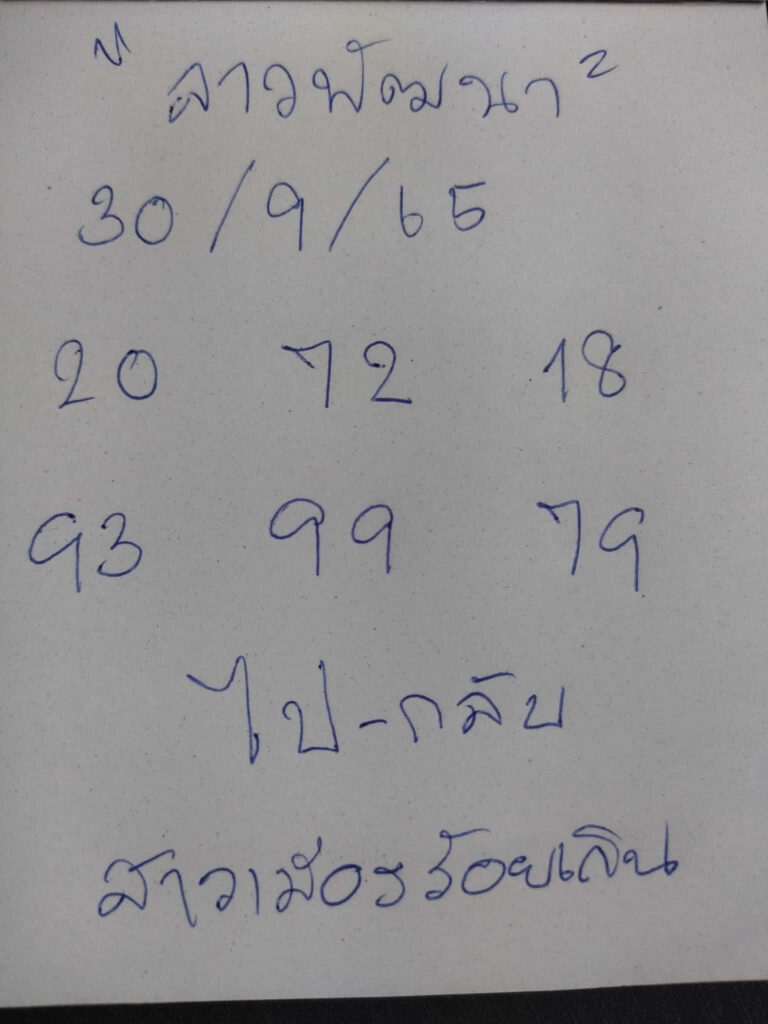 "ลาวพัฒนา"
30/9/65
20 72 18
93 99 79
ไป-กลับ
สาวเมืองร้อยเกิน